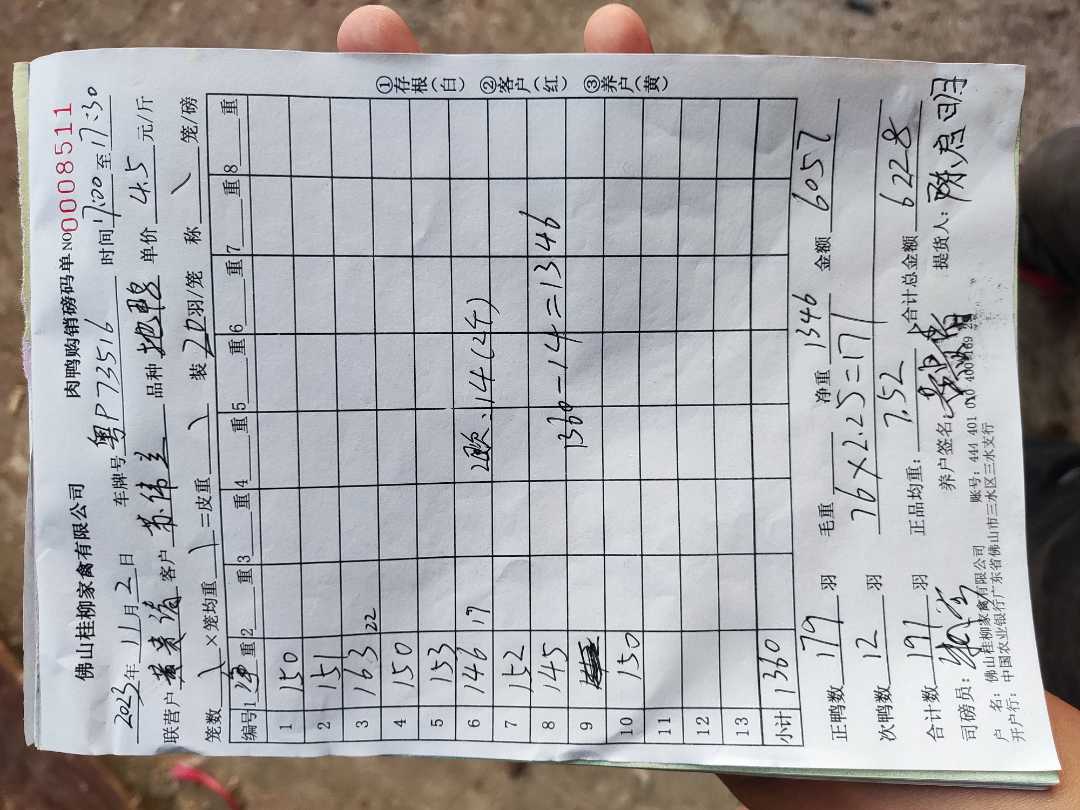 佛山桂柳家禽有限公司 肉鸭购销磅码单 NO 0008511
2023年 11月 2日 车牌号 粤P73516 时间 17:00 至 17:30
联营户 客户 苏伟兰 品种 单价 4.5 元/斤
笼数 \ ×笼均重 \ =皮重 \ 装 20 羽/笼 称 \ 笼/磅
编号 1净重 2 重 3 重 4 重 5 重 6 重 7 重 8 重
1 150
2 151
3 163 22
4 150
5 153
6 146 17 2次:14(2斤)
7 152
8 145 1360-14=1346
9
10 150
11
12
13
小计 1360
正鸭数 179 羽 毛重 净重 1346 金额 6057
次鸭数 12 羽 76×2.25=171
合计数 191 羽 正品均重: 7.52 合计总金额 6228
司磅员: 养户签名: 提货人: 陈启明
户 名: 佛山桂柳家禽有限公司 账号: 444 401 010 400
开户行: 中国农业银行广东省佛山市三水区三水支行
①存根(白) ②客户(红) ③养户(黄)